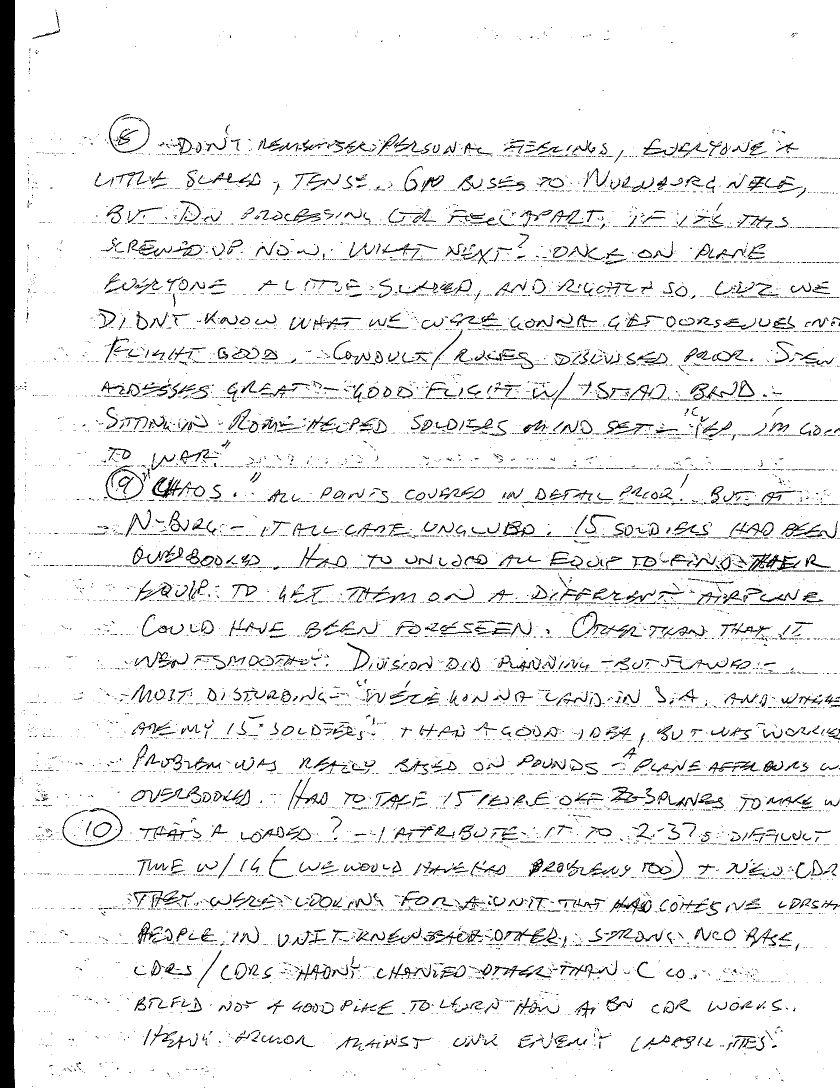 (8) - DON'T REMEMBER PERSONAL FEELINGS, EVERYONE A
LITTLE SCARED, TENSE. GOOD BUSES TO NURNBURG NICE,
BUT ON PROCESSING CTR FELL APART, IF IT'S THIS
SCREWED UP NOW, WHAT NEXT? ONCE ON PLANE
EVERYONE A LITTLE SCARED, AND RIGHTLY SO, CUZ WE
DIDN'T KNOW WHAT WE WERE GONNA GET OURSELVES INT
FLIGHT GOOD. CONDUCT/RULES DISCUSSED PRIOR. STEW
ARDESSES GREAT - GOOD FLIGHT W/ 1STAD BAND. -
SITTING IN ROME HELPED SOLDIERS MIND SET - "YEP, I'M GOIN
TO WAR."
(9) "CHAOS." ALL POINTS COVERED IN DETAIL PRIOR! BUT AT
N-BURG - IT ALL CAME UNGLUED. 15 SOLDIERS HAD BEEN
OVERBOOKED. HAD TO UNLOAD ALL EQUIP TO FIND THEIR
EQUIP. TO GET THEM ON A DIFFERENT AIRPLANE
COULD HAVE BEEN FORESEEN. OTHER THAN THAT IT
WENT SMOOTHLY. DIVISION DID PLANNING - BUT FLAWED -
MOST DISTURBING - "WE'RE GONNA LAND IN S.A. AND WHERE
ARE MY 15 SOLDIERS," I HAD A GOOD IDEA, BUT WAS WORRIED
PROBLEM WAS REALLY BASED ON POUNDS - A PLANE AFTER OURS W
OVERBOOKED. HAD TO TAKE 15 PEOPLE OFF 3 PLANES TO MAKE W
(10) THAT'S A LOADED ? - I ATTRIBUTE IT TO 2-37s DIFFICULT
TIME W/ IG (WE WOULD HAVE HAD PROBLEMS TOO) + NEW CDR
THEY WERE LOOKING FOR A UNIT THAT HAD COHESIVE LDRSH
PEOPLE IN UNIT KNEW EACH OTHER, STRONG NCO BASE,
LDRS/CDRS HADN'T CHANGED OTHER THAN C CO.
BTLFLD NOT A GOOD PLACE TO LEARN HOW A BN CDR WORKS.
HEAVY ARMOR AGAINST UNK ENEMY CAPABILITIES.